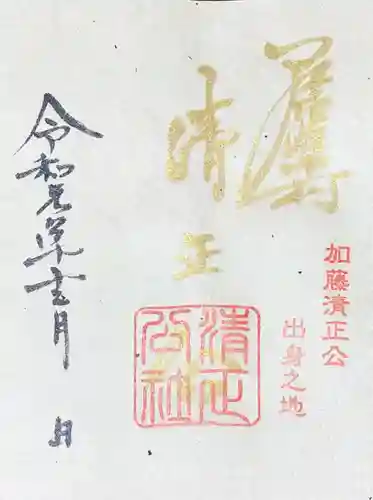 加藤清正公
出身之地
清正
清正
公社
令和元年十二月
日